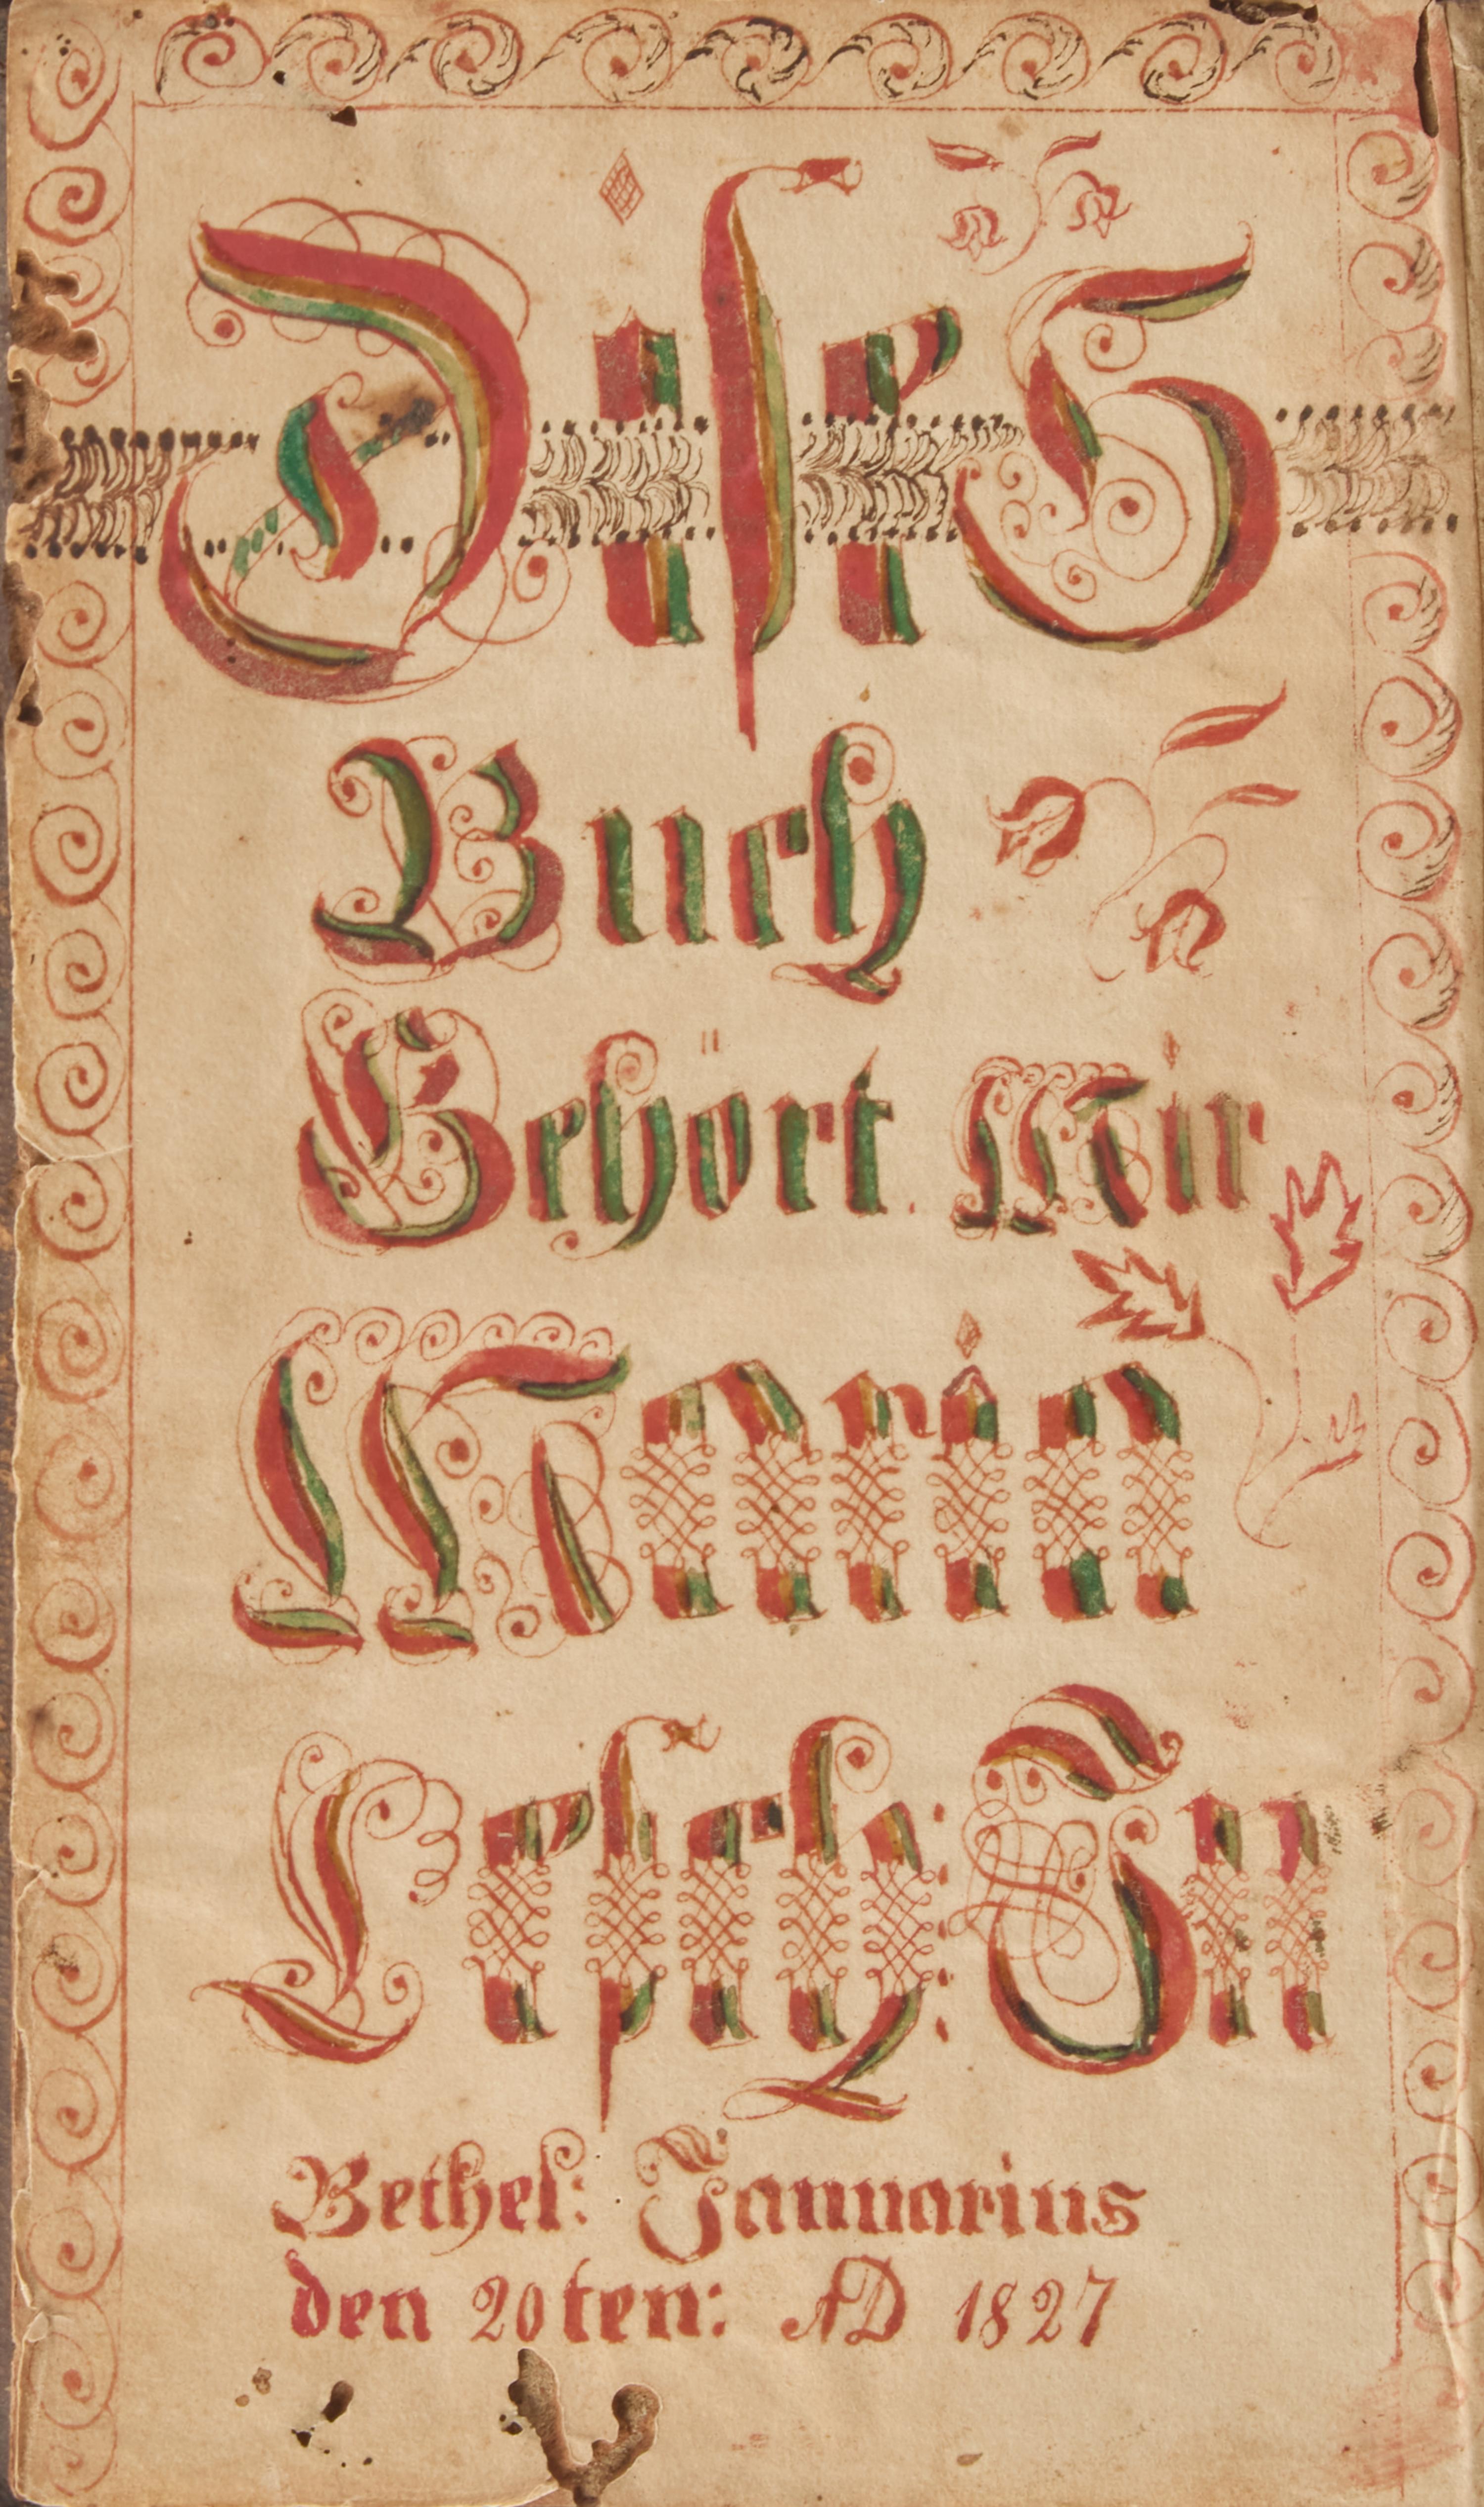 Diſes
Buch
Gehört Mir
Maria
Leſch: In
Bethel: Januarius
den 20ten: AD 1827